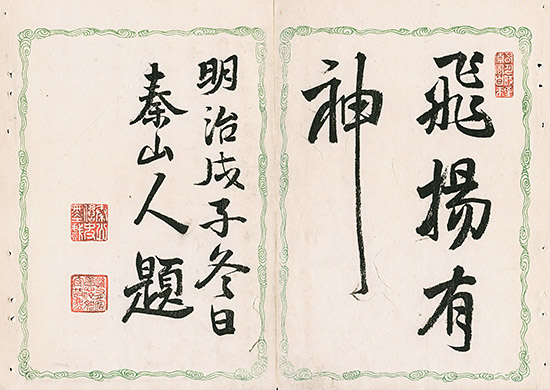 飛揚有
神
明治戊子冬日
秦山人題